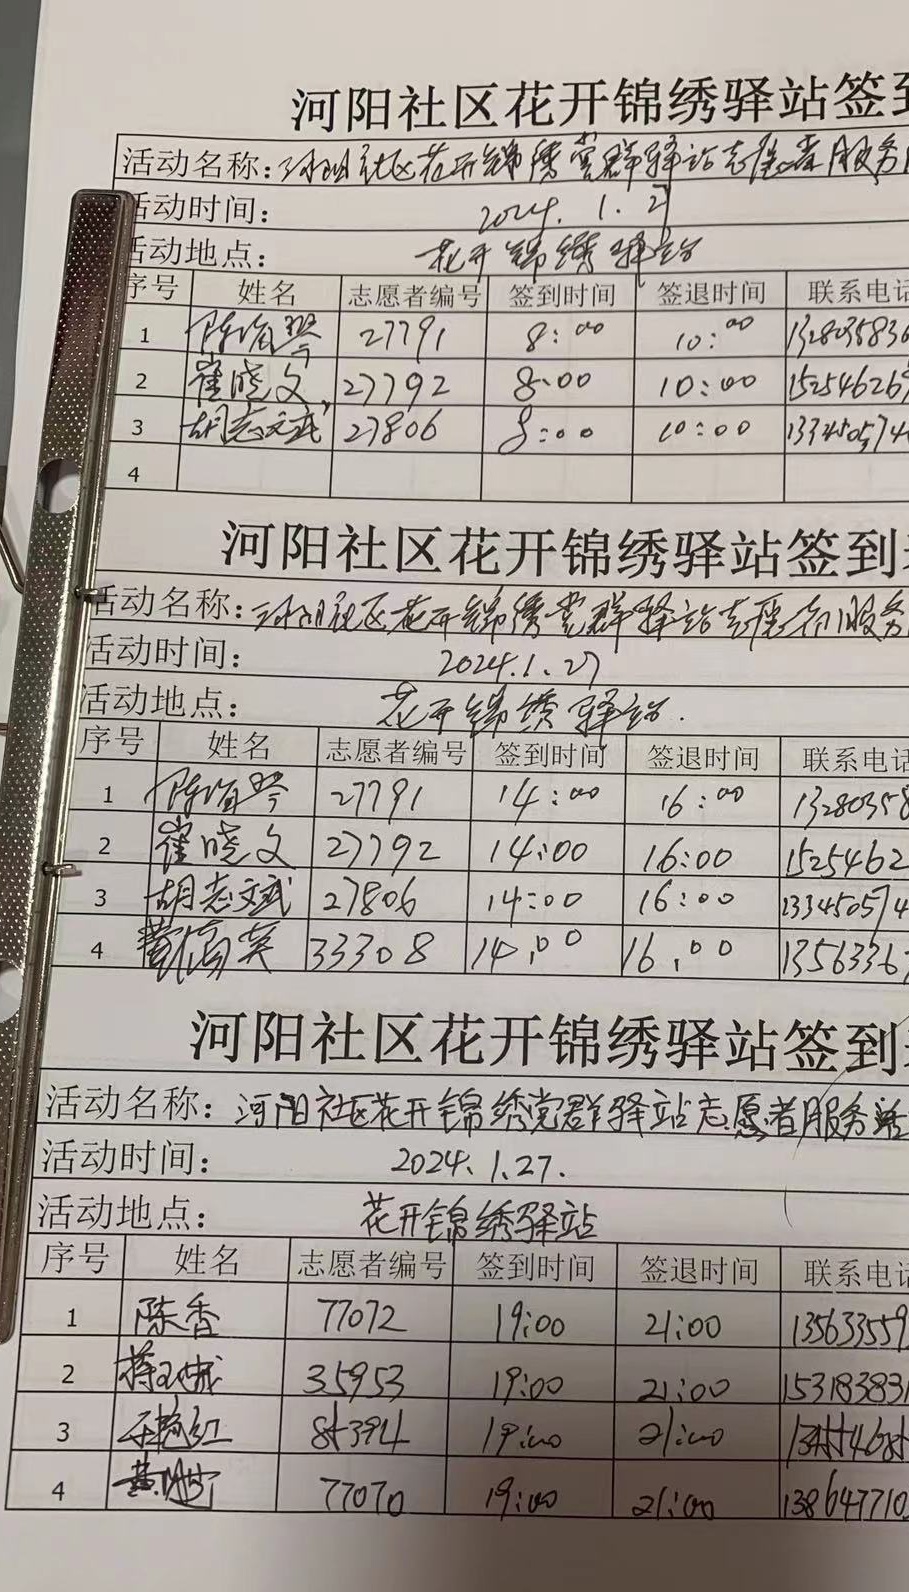 河阳社区花开锦绣驿站签到
活动名称：河阳社区花开锦绣党群驿站志愿者服务
活动时间： 2024.1.27
活动地点： 花开锦绣驿站
序号 姓名 志愿者编号 签到时间 签退时间 联系电话
1 27791 8:00 10:00 132803583
2 崔晓文 27792 8:00 10:00 15254626
3 胡志斌 27806 8:00 10:00 133450574
4
河阳社区花开锦绣驿站签到
活动名称：河阳社区花开锦绣党群驿站志愿者服务
活动时间： 2024.1.27
活动地点： 花开锦绣驿站.
序号 姓名 志愿者编号 签到时间 签退时间 联系电话
1 27791 14:00 16:00 13280358
2 崔晓文 27792 14:00 16:00 1525462
3 胡志斌 27806 14:00 16:00 133450574
4 33308 14:00 16:00 13563367
河阳社区花开锦绣驿站签到
活动名称：河阳社区花开锦绣党群驿站志愿者服务活
活动时间： 2024.1.27.
活动地点： 花开锦绣驿站
序号 姓名 志愿者编号 签到时间 签退时间 联系电话
1 陈香 77072 19:00 21:00 135633559
2 35953 19:00 21:00 153183831
3 19:00 21:00
4 77070 19:00 21:00 138647710